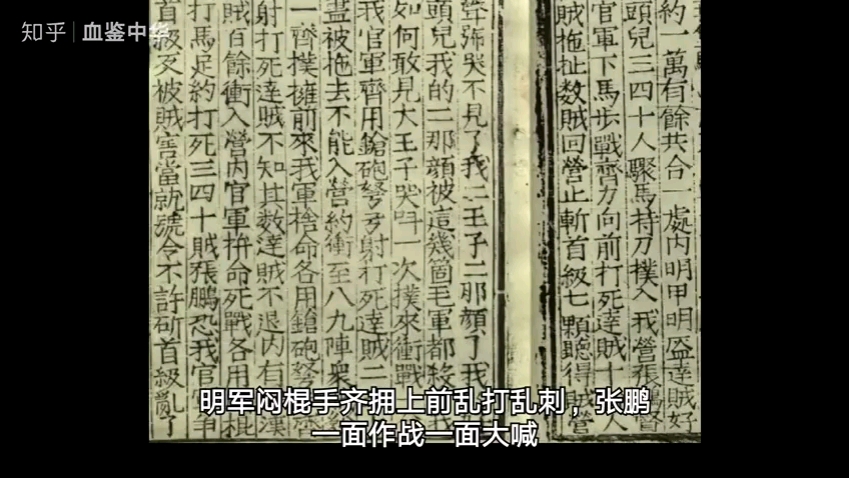 知乎 血鉴中华
約一萬有餘共合一處内明甲明盔達賊好
頭兒三四十人驟馬持刀撲入我營張
官軍下馬步戰齊力向前打死達賊十人
賊拖扯数賊回營止斬首級七顆聽得賊營
聲張哭不見了我二王子二那顔了我
頭兒我的二那顔被這幾箇毛軍都殺我
如何敢見大王子哭呌一次撲來衝戰
我官軍齊用鎗砲弩弓射打死達賊二
盡被拖去不能入營約衝至八九陣衆
一齊撲擁前來我軍捨命各用鎗砲弩齊
射打死達賊不知其数達賊不退内有漢
賊百餘衝入營内官軍拚命死戰各用棍
打馬足約打死三四十賊張鵬恐我官軍
首級又被賊害當就號令不許斫首級亂了
明军闷棍手齐拥上前乱打乱刺，张鹏
一面作战一面大喊